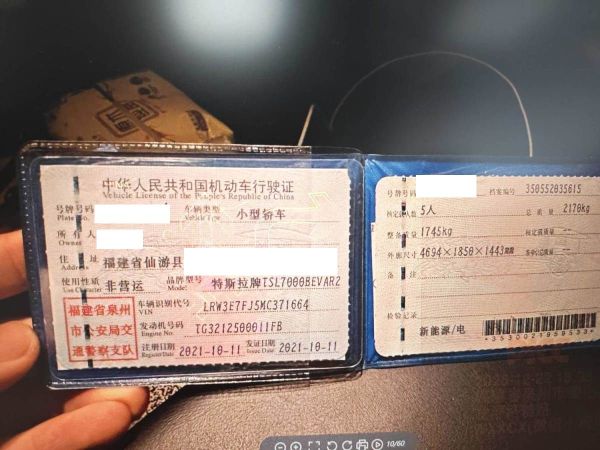 中华人民共和国机动车行驶证
Vehicle License of the People's Republic of China
号牌号码
Plate No.
车辆类型
Vehicle Type
小型轿车
所有人
Owner
住址
Address
福建省仙游县
使用性质
Use Character
非营运
品牌型号
Model
特斯拉牌TSL7000BEVAR2
福建省泉州
市公安局交
通警察支队
车辆识别代号
VIN
LRW3E7FJ5MC371664
发动机号码
Engine No.
TG3212500011FB
注册日期
Register Date
2021-10-11
发证日期
Issue Date
2021-10-11
号牌号码
档案编号
350552035615
核定载人数
5人
总质量
2170kg
整备质量
1745kg
核定载质量
--
外廓尺寸
4694×1850×1443
--
备注
检验记录
新能源/电
10/60